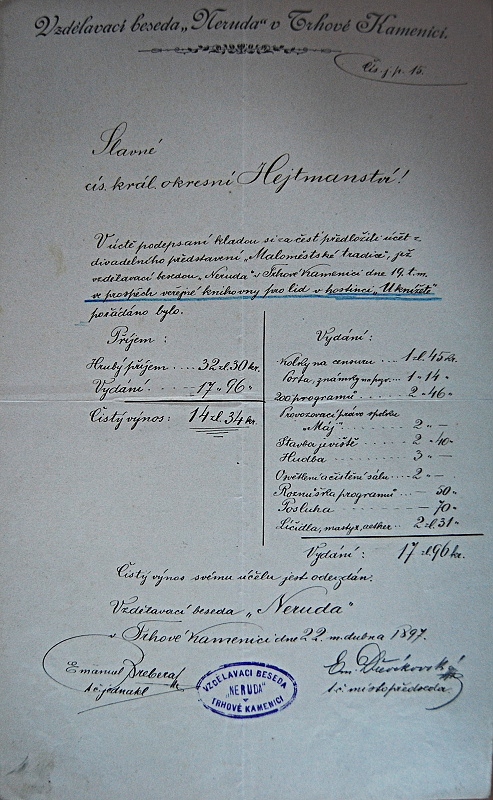 Vzdělavací beseda „Neruda“ v Trhové Kamenici.
Čís. j. p. 15.
Slavné
cís. král. okresní Hejtmanství!
V úctě podepsaní kladou si za čest předložiti účet z
divadelního představení „Maloměstské tradice“, jež
vzdělavací besedou „Neruda“ v Trhové Kamenici dne 19. t. m.
ve prospěch veřejné knihovny pro lid v hostinci „U kníže“
pořádáno bylo.
Příjem:
Hrubý příjem .... 32 zl. 30 kr.
Vydání ...... 17 „ 96 „
Čistý výnos: 14 zl. 34 kr.
Vydání:
Kolky na censuru ... 1 zl. 45 kr.
Porta, známky 1 „ 14 „
200 programů ...... 2 „ 46 „
Provozovací právo spolku
„Máj“ ........ 2 „ —
Stavba jeviště ...... 2 „ 40 „
Hudba ...... 3 „ —
Osvětlení a čistění sálu .. 2 „ —
Roznůška programů ... — 50 „
Posluha ..... — 70 „
Líčidla, mastyx, aether .. 2 zl. 31 „
Vydání: 17 zl. 96 kr.
Čistý výnos svému účelu jest odevzdán.
Vzdělavací beseda „Neruda“
v Trhové Kamenici dne 22. m. dubna 1897.
Emanuel
t. č. jednatel
VZDĚLAVACÍ BESEDA
„NERUDA“
v
TRHOVÉ KAMENICI
Em.
t. č. místopředseda.